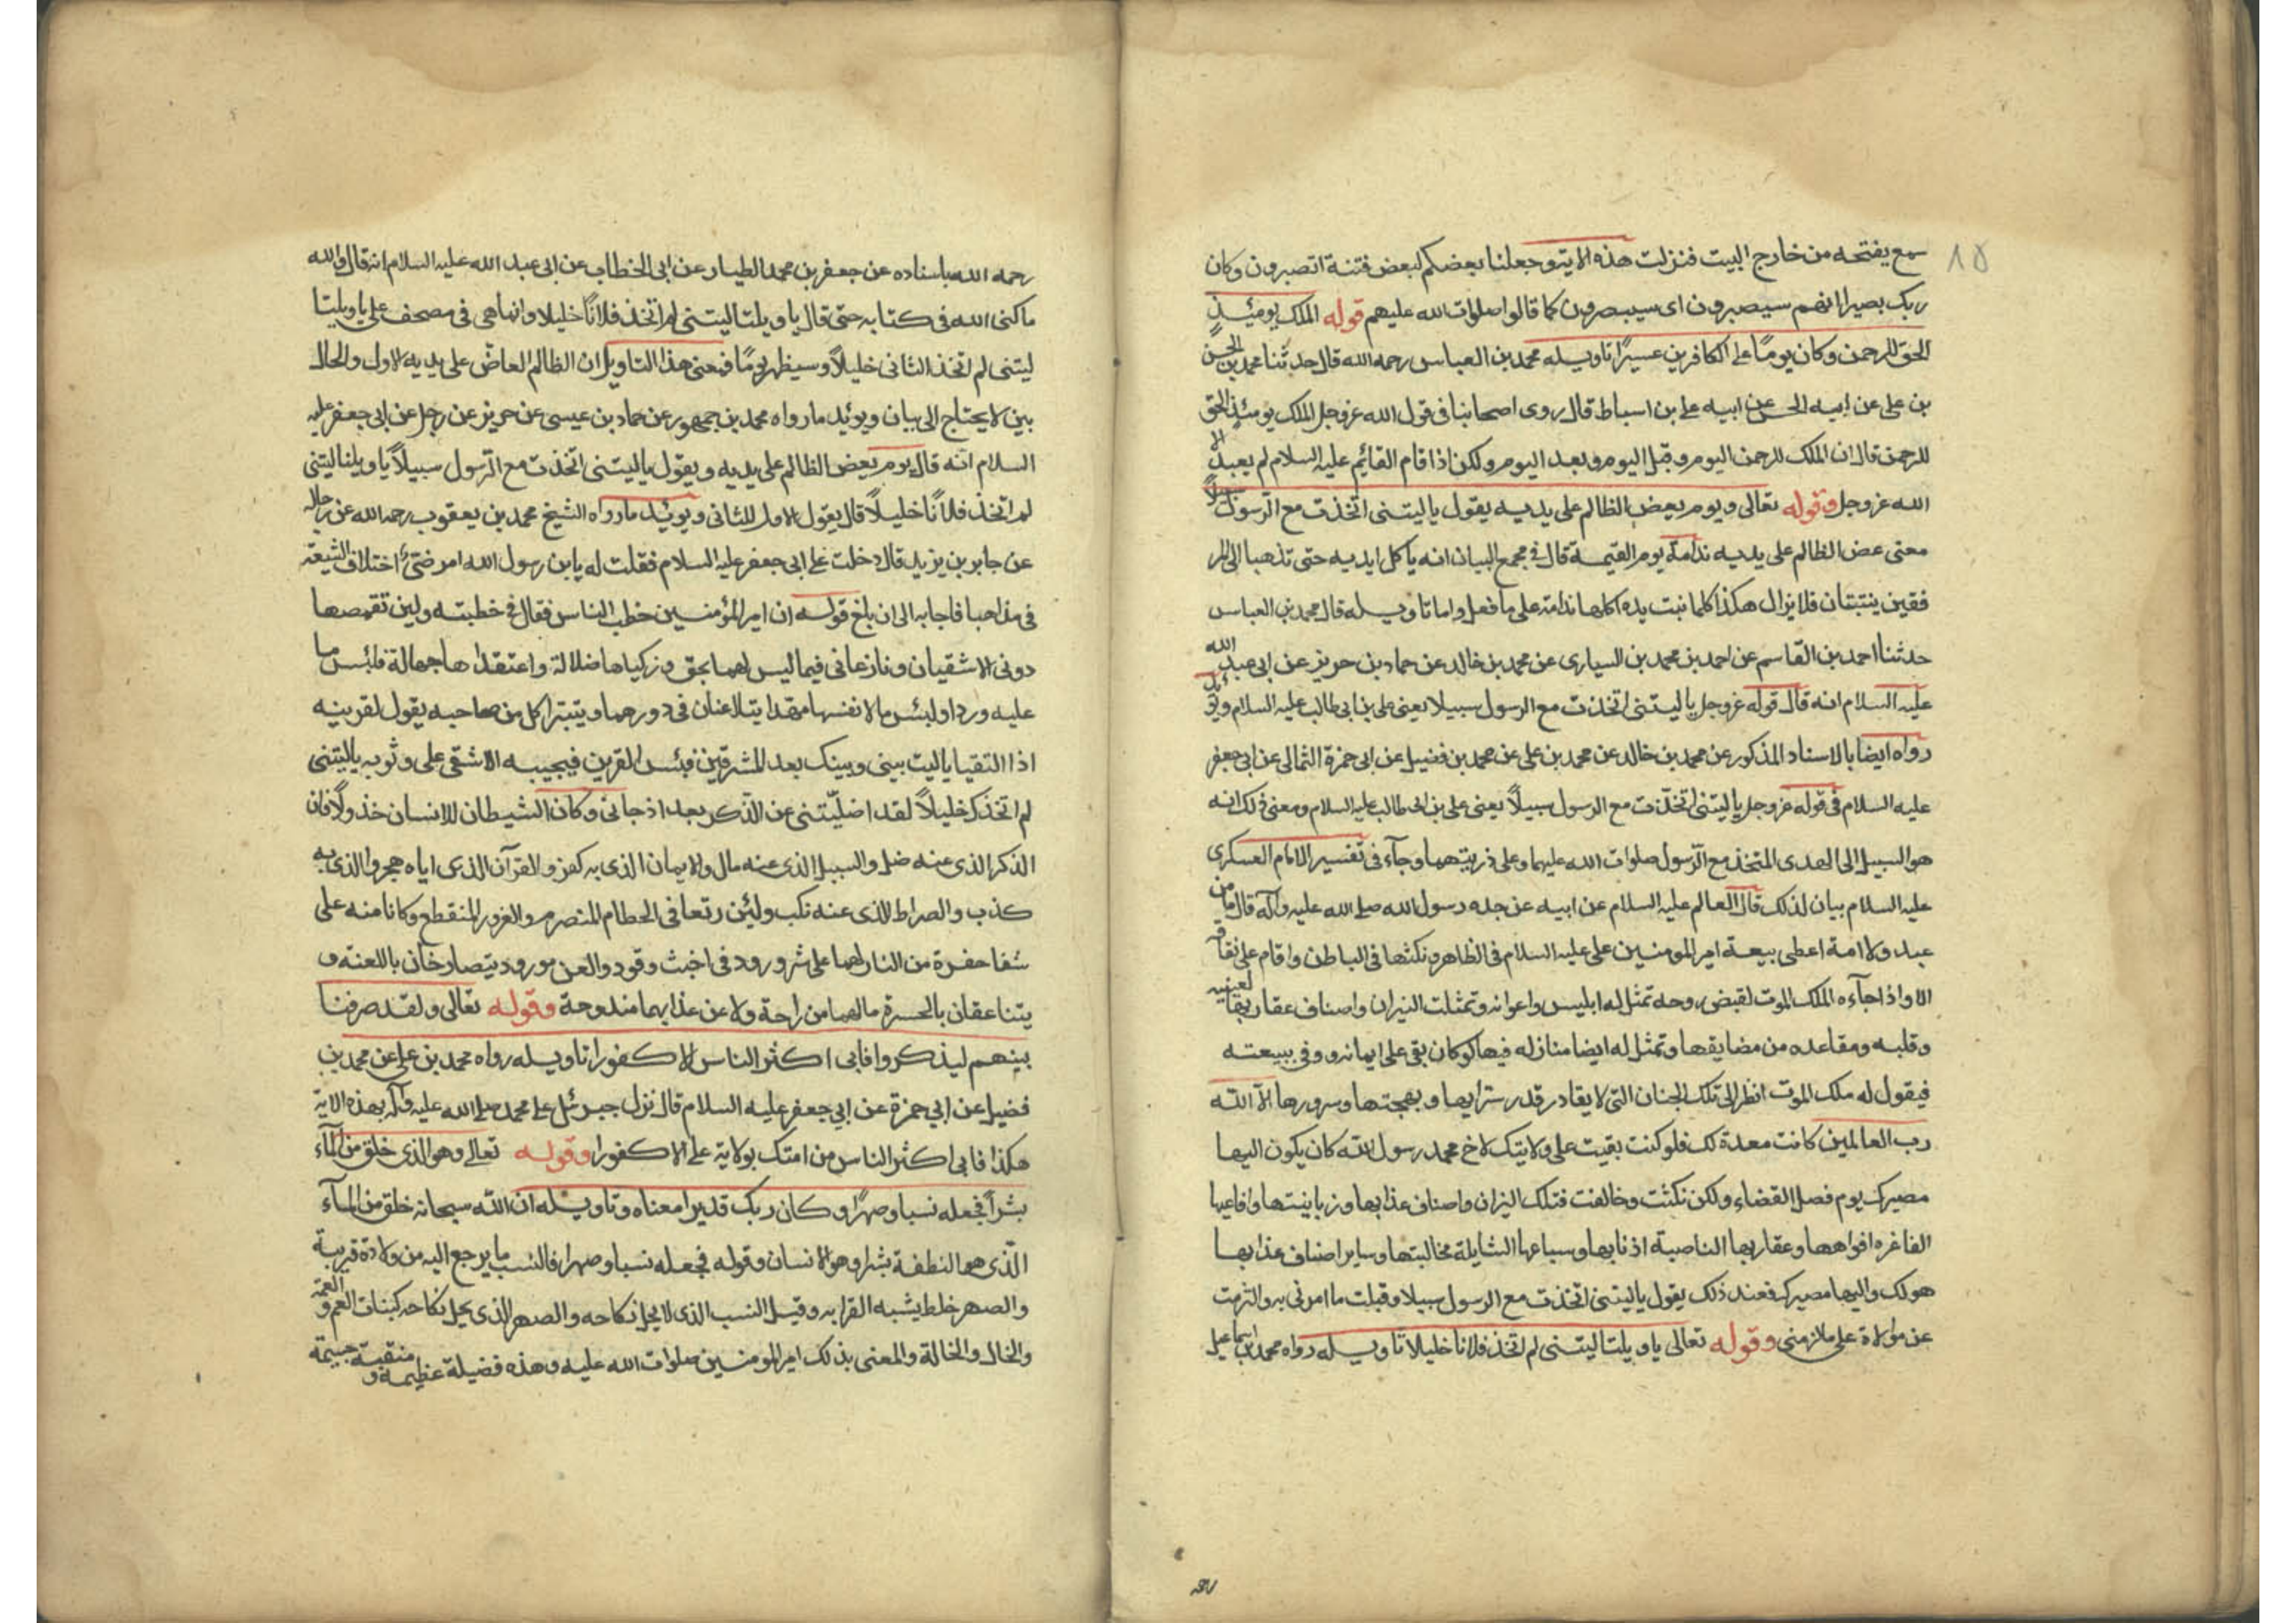 ١٥
سمع يفتحه من خارج البيت فنزلت هذه الاية وجعلنا بعضكم لبعض فتنة اتصبرون وكان
ربك بصيرا انهم سيصبرون اى سيصبرون كما قالوا صلوات الله عليهم قوله الملك يومئذٍ
الحق للرحمن وكان يومًا على الكافرين عسيرًا تاويله محمد بن العباس رحمه الله قال حدثنا محمد بن الحسن
بن على عن ابيه الحسن عن ابيه على بن اسباط قال روى اصحابنا فى قول الله عزوجل الملك يومئذ الحق
للرحمن قال ان الملك للرحمن اليوم وقبل اليوم وبعد اليوم ولكن اذا قام القائم عليه السلام لم يعبد الا
الله عزوجل وقوله تعالى ويوم يعض الظالم على يديه يقول ياليتنى اتخذت مع الرسول سبيلاً
معنى عض الظالم على يديه ندامة يوم القيمة قال فى مجمع البيان انه ياكل ايديه حتى تذهبا الى المر
فقين ينتبتان فلا يزال هكذا كلما نبت يده اكلها ندامة على ما فعل واما تاويله قال محمد بن العباس
حدثنا احمد بن القاسم عن احمد بن محمد بن السيارى عن محمد بن خالد عن حماد بن حريز عن ابى عبد الله
عليه السلام انه قال قوله عزوجل ياليتنى اتخذت مع الرسول سبيلا يعنى على بن ابى طالب عليه السلام ويؤيد
رواه ايضا بالاسناد المذكور عن محمد بن خالد عن محمد بن على عن محمد بن فضيل عن ابى حمزة الثمالى عن ابى جعفر
عليه السلام فى قوله عزوجل ياليتنى اتخذت مع الرسول سبيلاً يعنى على بن ابى طالب عليه السلام ومعنى ذلك انه
هو السبيل الى الهدى المتخذ مع الرسول صلوات الله عليهما وعلى ذريتهما وجاء فى تفسير الامام العسكرى
عليه السلام بيان لذلك قال العالم عليه السلام عن ابيه عن جده رسول الله صلى الله عليه وآله قال ما من
عبد ولا امة اعطى بيعة امير المومنين على عليه السلام فى الظاهر ونكثها فى الباطن واقام على نفاقه
الا واذا جآءه الملك الموت لقبض روحه تمثل له ابليس واعوانه وتمثلت النيران واصناف عقاربها لعينيه
وقلبه ومقاعده من مضايقها وتمثل له ايضا منازله فيها لو كان بقى على ايمانه ووفى ببيعته
فيقول له ملك الموت انظر الى تلك الجنان التى لا يقادر قدر سترايها وبهجتها وسرورها الا الله
رب العالمين كانت معدة لك فلو كنت بقيت على ولايتك لاخ محمد رسول الله كان يكون اليها
مصيرك يوم فصل القضاء ولكن نكثت وخالفت فتلك النيران واصناف عذابها وزبانيتها وافاعيها
الفاغره افواهها وعقاربها الناصبة اذنابها وسباعها الشايلة مخالبها وساير اصناف عذابها
هو لك واليها مصيرك فعند ذلك يقول ياليتنى اتخذت مع الرسول سبيلا وقبلت ما امرنى به والتزمت
عن موالاة على ملازمنى وقوله تعالى ياويلتا ليتنى لم اتخذ فلانا خليلا تاويله رواه محمد بن اسماعيل
رحمه الله باسناده عن جعفر بن محمد الطيار عن ابى الخطاب عن ابى عبد الله عليه السلام انه قال والله
ما كنى الله فى كتابه حتى قال ياويلتا ليتنى لم اتخذ فلانًا خليلا وانما هى فى مصحف على ياويلتا
ليتنى لم اتخذ الثانى خليلاً وسيظهر يومًا فمعنى هذا التاويل ان الظالم العاض على يديه الاول والحال
بين لا يحتاج الى بيان ويوئد ما رواه محمد بن جمهور عن حماد بن عيسى عن حريز عن رجل عن ابى جعفر عليه
السلام انه قال يوم يعض الظالم على يديه ويقول ياليتنى اتخذت مع الرسول سبيلاً ياويلتا ليتنى
لم اتخذ فلانًا خليلاً قال يقول الاول للثانى ويويئد ما رواه الشيخ محمد بن يعقوب رحمه الله عن رجاله
عن جابر بن يزيد قال دخلت على ابى جعفر عليه السلام فقلت له يابن رسول الله امرضتئ اختلاف الشيعة
فى مذاهبها فاجابه الى ان بلغ قوله ان امير المؤمنين خطب الناس فقال فى خطبته ولين تقمصها
دونى الاشقيان ونازعانى فيما ليس لهما بحق وركباها ضلالة واعتقداها جهالة فلبئس ما
عليه وردا ولبئس ما لانفسهما مهدا يتلاعنان فى دورهما ويتبترا كل من صاحبه يقول لقرينه
اذا التقيا ياليت بينى وبينك بعد المشرقين فبئس القرين فيجيبه الاشقى على وثوبه ياليتنى
لم اتخذك خليلاً لقد اضلّتنى عن الذكر بعد اذ جائى وكان الشيطان للانسان خذولاً فان
الذكر الذى عنه ضل والسبيل الذى عنه مال والايمان الذى به كفر والقرآن الذى اياه هجر والذى به
كذب والصراط الذى عنه نكب ولئن رتعا فى الحطام المنصرم والغرور المنقطع وكانا منه على
شفا حفرة من النار لهما على شر ورود فى اخبث وقود والعن مورود يتصارخان باللعنة و
يتناعقان بالحسرة مالهما من راحة ولا عن عذابهما مندوحة وقوله تعالى ولقد صرفنا
بينهم ليذكروا فابى اكثر الناس الا كفورا تاويله رواه محمد بن على عن محمد بن
فضيل عن ابى حمزة عن ابى جعفر عليه السلام قال نزل جبرئيل على محمد صلى الله عليه وآله بهذه الاية
هكذا فابى اكثر الناس من امتك بولاية على الا كفورا وقوله تعالى وهو الذى خلق من المآء
بشراً فجعله نسبا وصهرًا وكان ربك قديرا معناه وتاويله ان الله سبحانه خلق من المآء
الّذى هو النطفة بشرا وهو الانسان وقوله فجعله نسبا وصهرا فالنسب ما يرجع اليه من ولادة قريبة
والصهر خلط يشبه القرابه وقيل النسب الذى لا يحل نكاحه والصهر الذى يحل نكاحه كبنات العم والعمة
والخال والخالة والمعنى بذلك امير المومنين صلوات الله عليه وهذه فضيلة عظيمة ومنقبة جسيمة